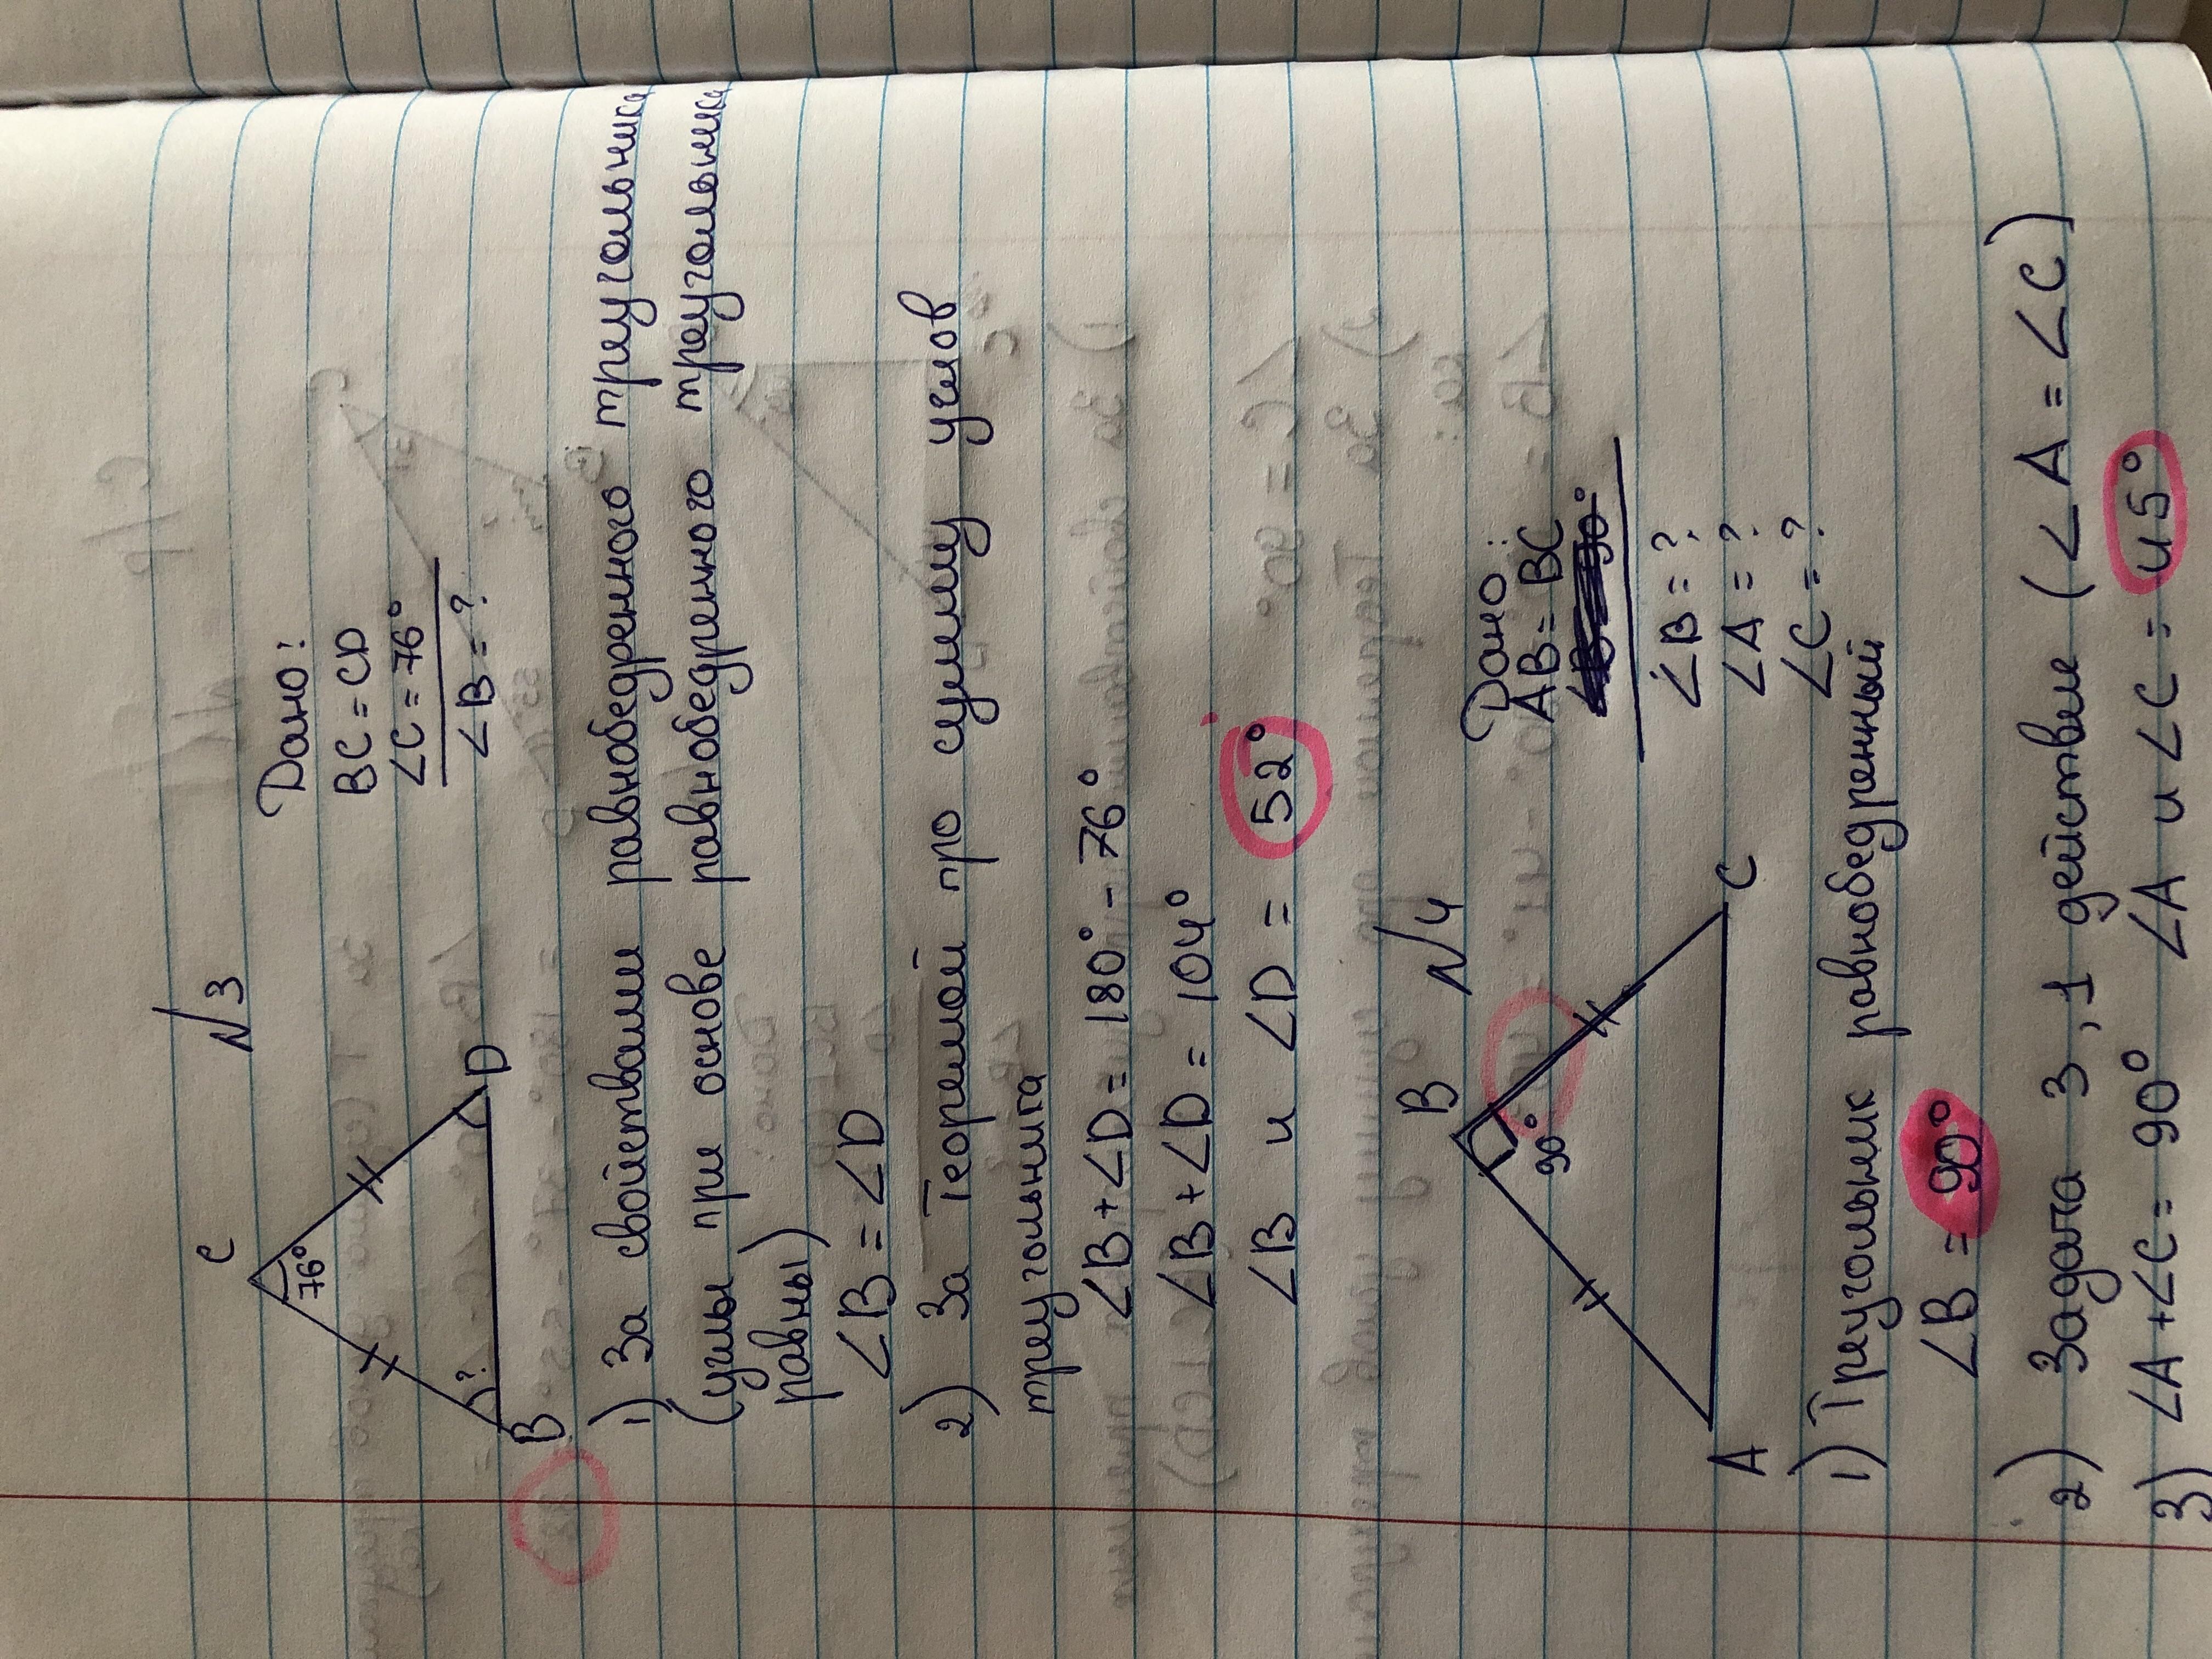 N3
C
76°
?
B
D
Дано:
BC = CD
∠C = 76°
∠B = ?
1) За свойствами равнобедренного треугольника
(углы при основе равнобедренного треугольника
равны)
∠B = ∠D
2) За Теоремой про сумму углов
треугольнига
∠B+∠D = 180° - 76°
∠B+∠D = 104°
∠B и ∠D = 52°
N4
B
90°
A
C
Дано:
AB = BC
∠B = ?
∠A = ?
∠C = ?
1) Треугольник равнобедренный
∠B = 90°
2) Задача 3, 1 действие (∠A = ∠C)
3) ∠A+∠C = 90° ∠A и ∠C = 45°